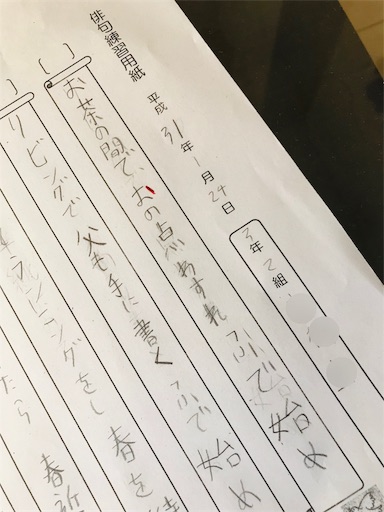 俳句練習用紙 平成31年1月24日
3年2組
お茶の間で おの点わすれ ふで始め
リビングで 父も手に書く ふで始め
ランニングをし 春を
たら 春祈